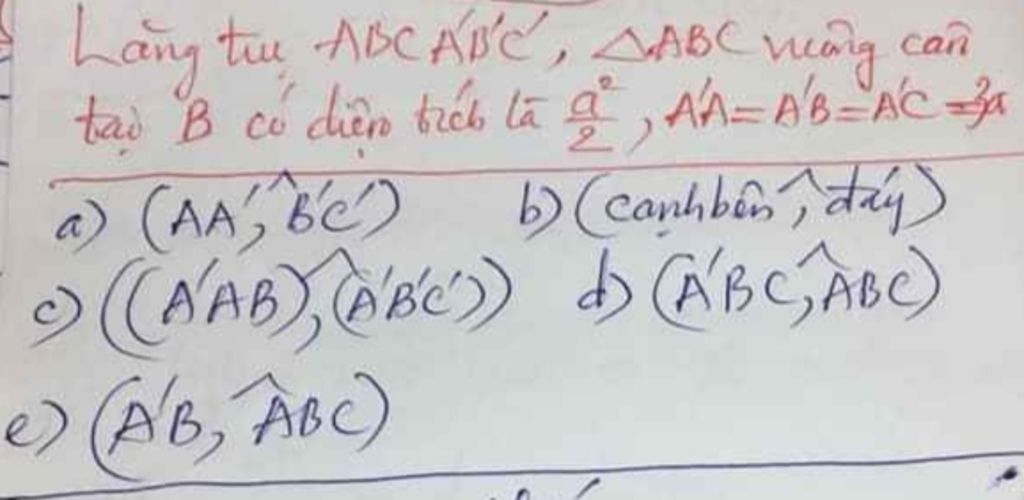 Lăng trụ ABCA'B'C', △ABC vuông cân
tại B có diện tích là a²/2, A'A = A'B = A'C = 3a
a) (AA', B'C') b) (cạnh bên, đáy)
c) ((A'AB), (A'B'C')) d) (A'BC, ABC)
e) (A'B, ABC)